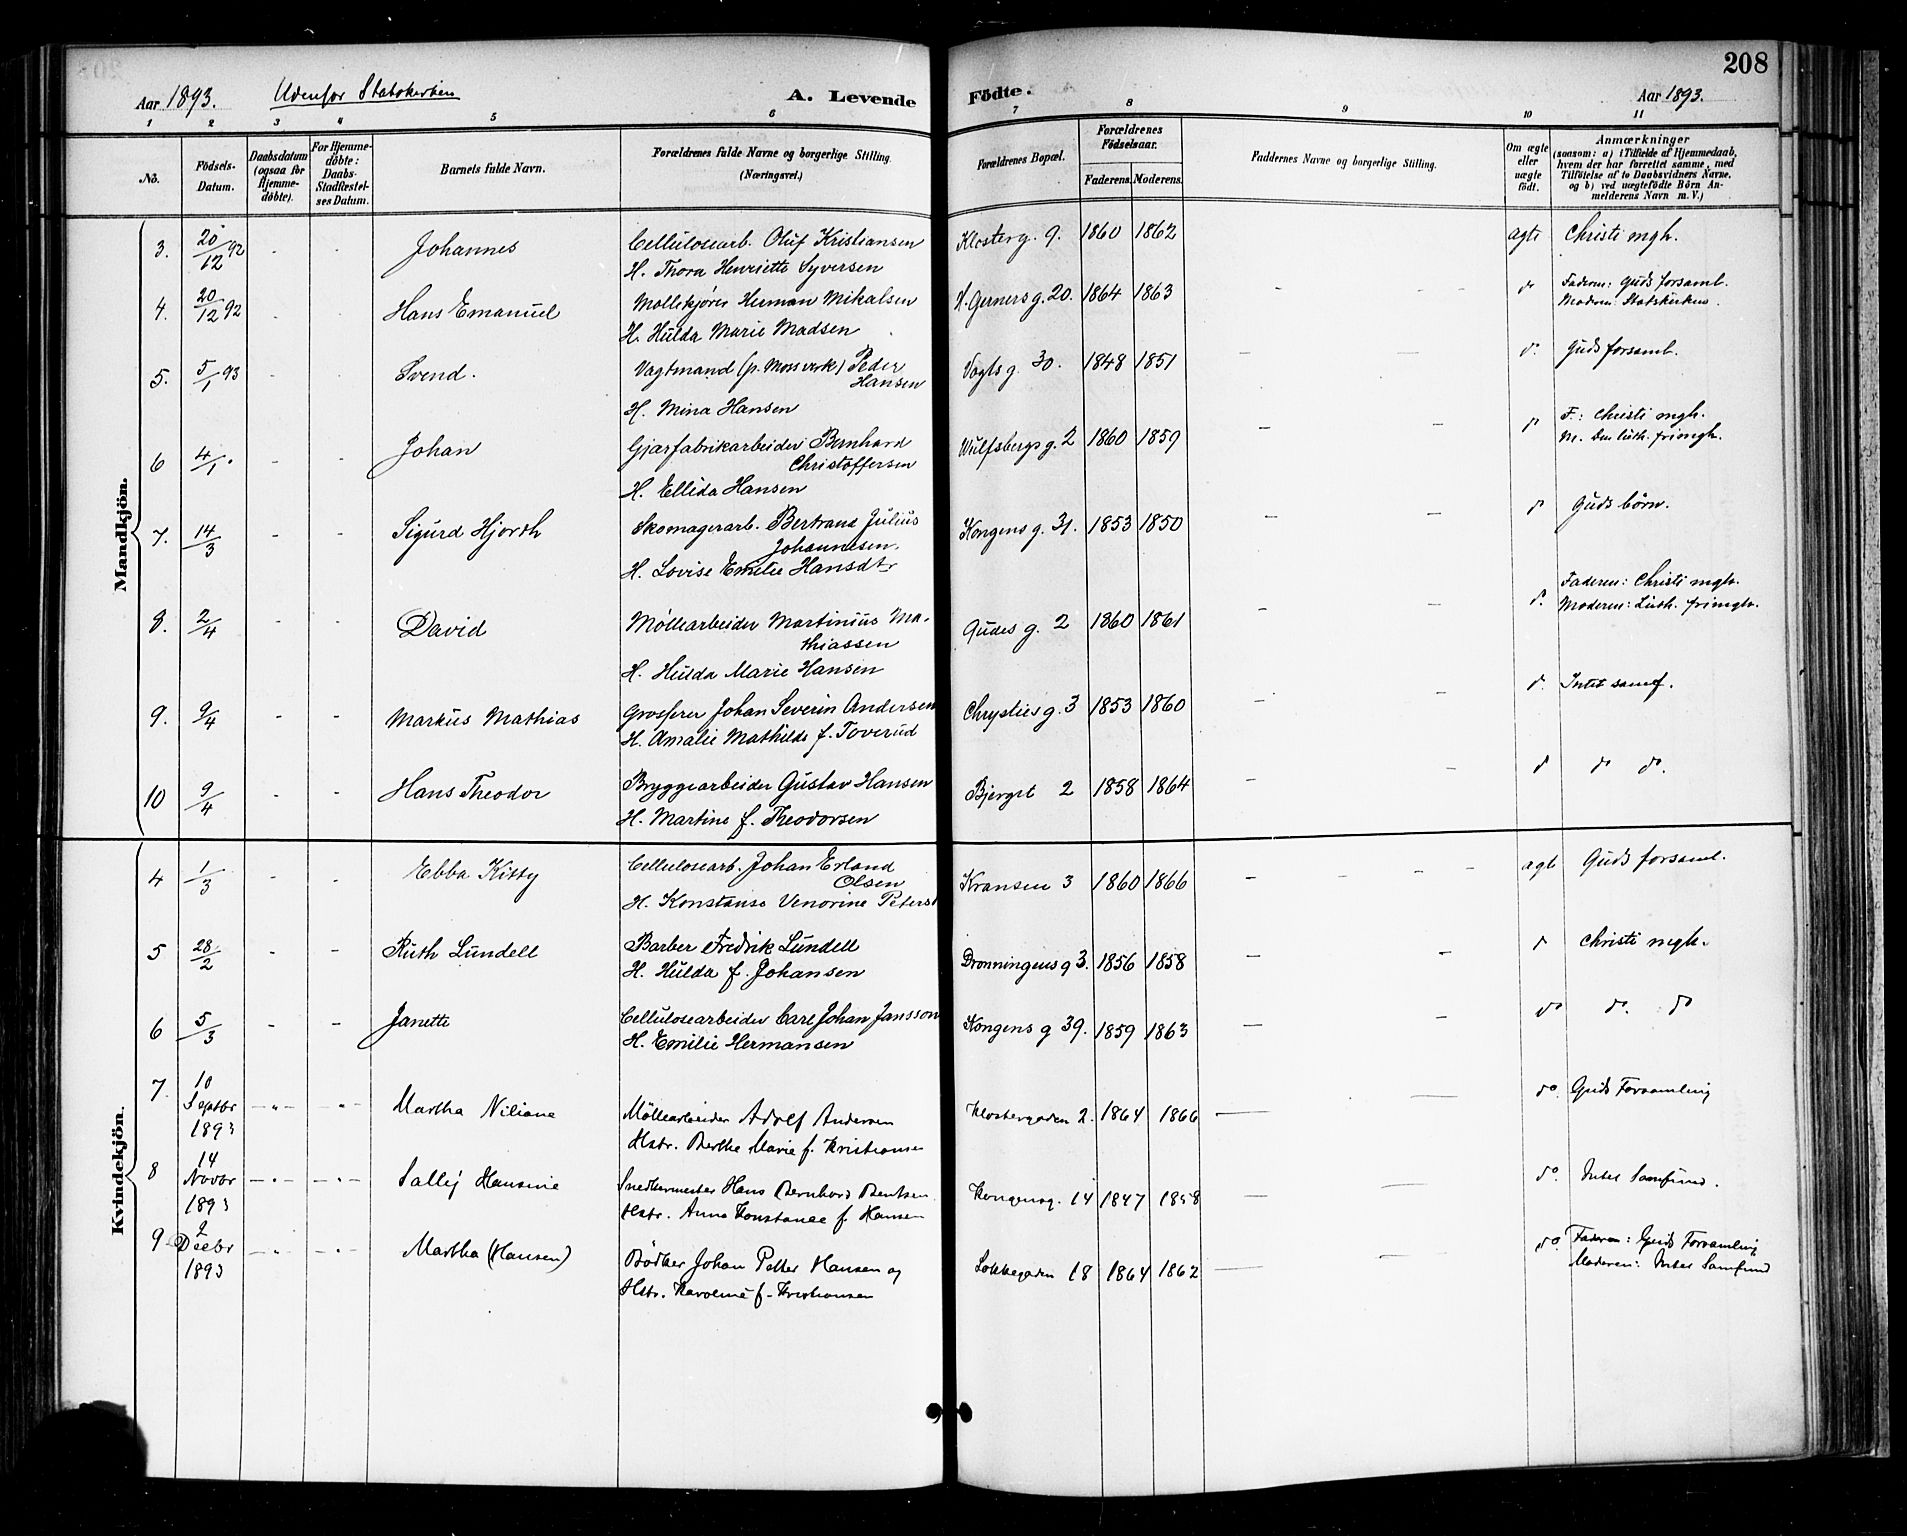 208
Aar 1893. Udenfor Statskirken A. Levende Födte. Aar 1893.
1 2 3 4 5 6 7 8 9 10 11
No.
Födsels-Datum.
Daabsdatum (ogsaa for Hjemme-döbte).
For Hjemme-döbte: Daabs-Stadfæstel-ses Datum.
Barnets fulde Navn.
Forældrenes fulde Navne og borgerlige Stilling. (Næringsvei.)
Forældrenes Bopæl.
Forældrenes Födselsaar.
Faderens. Moderens.
Faddernes Navne og borgerlige Stilling.
Om ægte eller uægte födt.
Anmærkninger
(saasom: a) i Tilfælde af Hjemmedaab,
hvem der har forrettet samme, med
Tilföielse af to Daabsvidners Navne,
og b) ved uægtefödte Börn An-
melderens Navn m. V.)
Mandkjön.
3. 20/12 92 - - Johannes Cellulosearb. Oluf Kristiansen Klosterg. 9. 1860 1862 ægte Christi mgh.
H. Thora Henriette Syversen
4. 20/12 92 Hans Emanuel Møllekjører Herman Mikalsen H. Gerners g. 20. 1864 1863 - - do Faderen: Guds forsaml.
H. Hulda Marie Madsen Moderen: Statskirken.
5. 5/1 93 Svend. Vagtmand (p. Moss verk) Peder Vogts g. 30. 1848 1851 - - do. Guds forsaml.
Hansen
H. Mina Hansen
6 4/1 - - Johan Gjærfabrikarbeider Bernhard Wulfsbergs g. 2 1860 1859 - - do F.: Christi mgh.
Christoffersen M. Den luth. frimgh.
H. Ellida Hansen
7. 14/3 - - Sigurd Hjorth Skomagerarb. Bertrans Julius Kongens g. 31. 1853 1850 - - do Guds börn.
Johannesen.
H. Lovise Emelie Hansdtr
8. 2/4 - - David Møllearbeider Martinius Ma- Gudes g. 2 1860 1861 - - do. Faderen: Christi mgh.
thiassen Moderen: Luth. frimgh.
H. Hulda Marie Hansen
9. 9/4 - - Markus Mathias Grosserer Johan Severin Andersen Chrysties g. 3 1853 1860 - - do. Intet samf.
H. Amalie Mathilde f. Toverud
10 9/4 - - Hans Theodor Bryggearbeider Gustav Hansen Bjerget 2 1858 1864 - - do do do.
H. Martine f. Theodorsen
Kvindekjön.
4 1/3 - - Ebba Kitty Cellulosearb. Johan Erland Kransen 3 1860 1866 - - - - ægte Guds forsaml.
Olsen
H. Konstanse Venorine Peters
5 28/2 - - Ruth Lundell Barber Fredrik Lundell Dronningens g 3. 1856 1858 - - do Christi mgh.
H. Hulda f. Johansen
6 5/3 - - Janette Cellulosearbeider Carl Johan Jansson Kongens g 39. 1859 1863 - - do do. do
H. Emilie Hermansen
7. 10 Septbr 1893 -"- -"- Martha Niliane Möllearbeider Adolf Andersen Klostergaden 2. 1864 1866 do. Guds Forsamling
Hstr. Berthe Marie f. Kristianse
8 14 Novbr 1893 -"- -"- Sally Hansine Snedkermester Hans Bernhard Bentsen Kongensg. 14 1847 1858 do. Intet Samfund.
Hstr. Anna Konstance f. Hansen
9 2 Decbr 1893 -"- -"- Martha (Hansen) Bödker Johan Petter Hansen og Lökkegaden 18 1864 1862 do. Faderen: Guds Forsamling
Hstr. Karoline f. Kristiansen Moderen: Intet Samfund